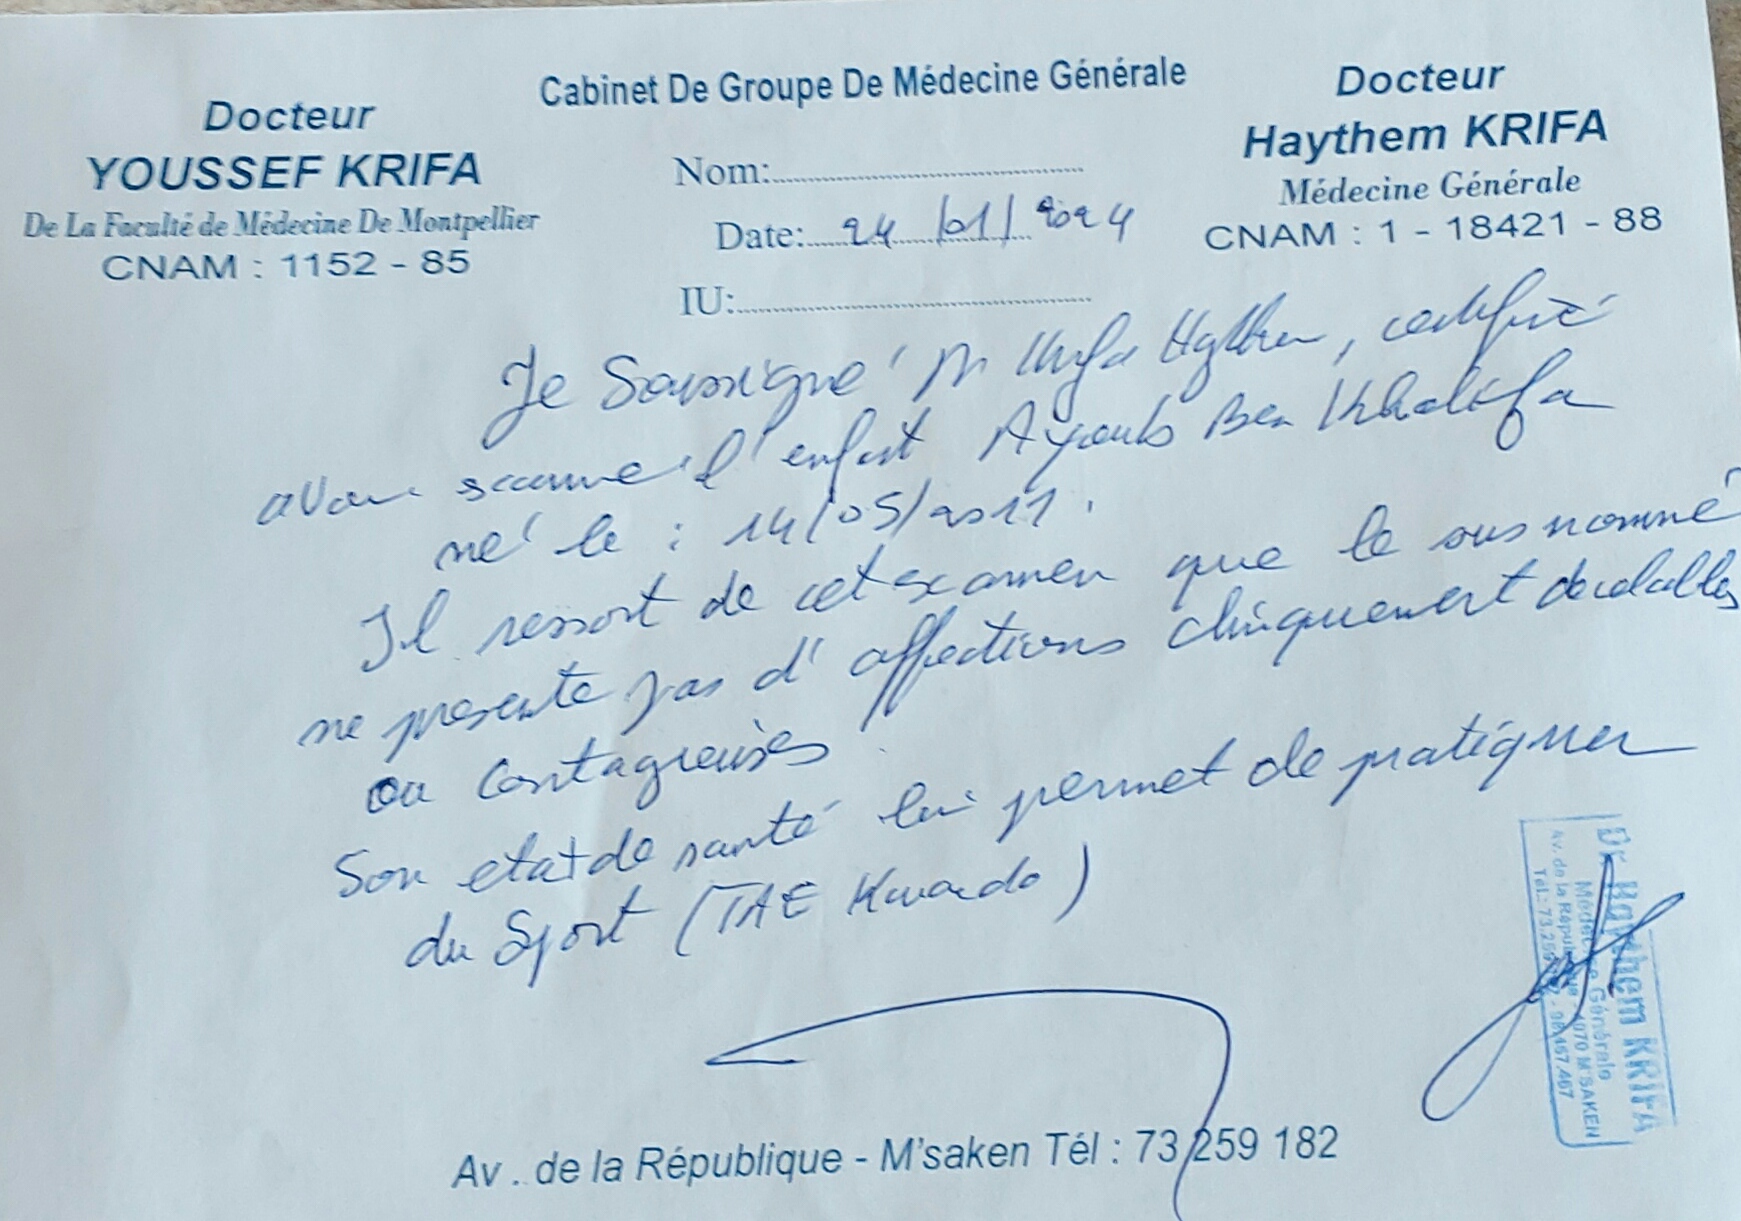 Cabinet De Groupe De Médecine Générale
Docteur
YOUSSEF KRIFA
De La Faculté de Médecine De Montpellier
CNAM : 1152 - 85
Nom:
Date: 24/01/2024
IU:
Docteur
Haythem KRIFA
Médecine Générale
CNAM : 1 - 18421 - 88
Je Soussigné Dr Krifa Haythem, certifie
avoir examiné l'enfant Ayoub Ben Khalifa
né le : 14/05/2011.
Il ressort de cet examen que le sus nommé
ne presente pas d'affections cliniquement decelables
ou Contagieuses
Son etat de santé lui permet de pratiquer
du Sport (TAE Kwando)
Dr Haythem KRIFA
Médecine Générale
Av. de la République - 4070 M'SAKEN
Tél.: 73.259 - 98.467.467
Av . de la République - M'saken Tél : 73 259 182